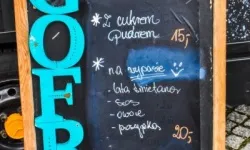 GOFR
* Z cukrem
pudrem 15,-
* na wypasie
- bita śmietana
- sos
- owoce
- posypka 20,-